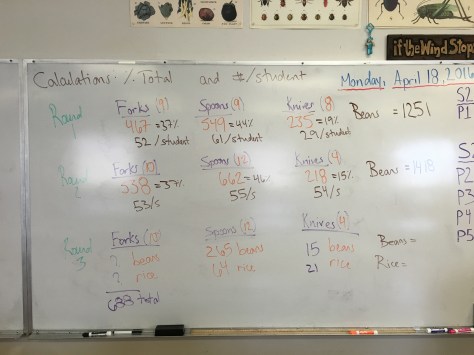 if the Wind Stop
Calculations: % Total and #/student
Monday, April 18, 2016
Round
Forks (9)
467 = 37%
52 / student
Spoons (9)
549 = 44%
61 / student
Knives (8)
235 = 19%
29 / student
Beans = 1251
S2
P1
Round
Forks (10)
538 = 37%
53/s
Spoons (12)
662 = 46%
55/s
Knives (4)
218 = 15%
54/s
Beans = 1418
P2
P3
P4
P5
Round 3
Forks
? beans
? rice
633 total
Spoons (12)
265 beans
64 rice
Knives (4)
15 beans
21 rice
Beans =
Rice =